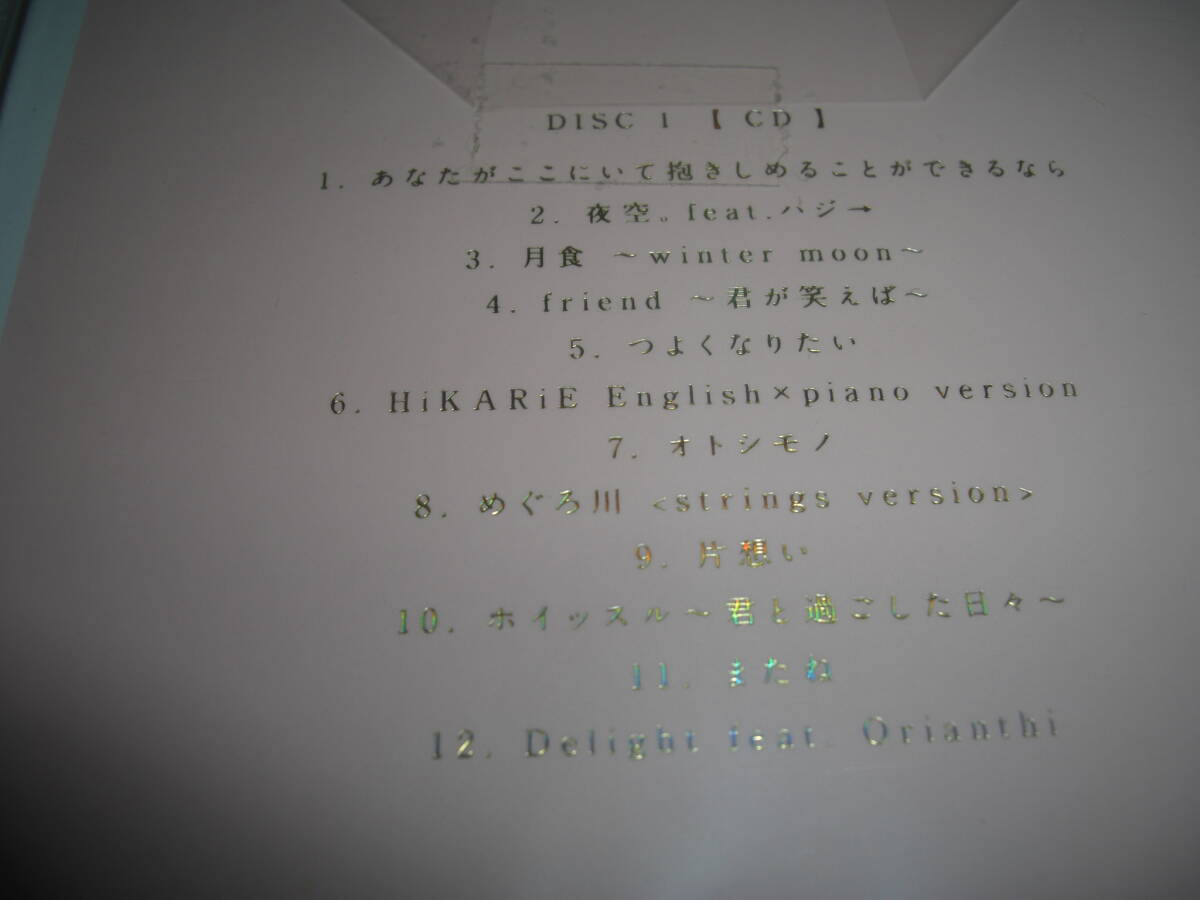 DISC 1 【 CD 】
1. あなたがここにいて抱きしめることができるなら
2. 夜空。feat.ハジ→
3. 月食 ～winter moon～
4. friend ～君が笑えば～
5. つよくなりたい
6. HiKARiE English×piano version
7. オトシモノ
8. めぐろ川 <strings version>
9. 片想い
10. ホイッスル～君と過ごした日々～
11. またね
12. Delight feat. Orianthi